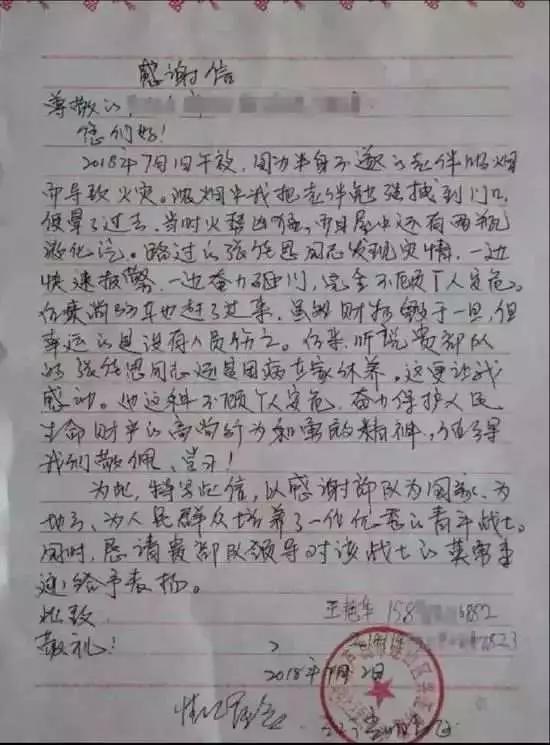 感谢信
尊敬的
您们好!
2018年7月1日午夜,因为半身不遂的老伴吸烟
而导致火灾。浓烟中我把老伴勉强拽到门口,
便晕了过去,当时火势凶猛,而且屋中还有两瓶
液化汽。路过的张佐思同志发现灾情,一边
快速报警,一边奋力砸门,完全不顾个人安危。
后来消防车也赶了过来,虽然财物毁于一旦,但
幸运的是没有人员伤亡。后来,听说贵部队
的张佐思同志还是因病在家休养。这更让我
感动。他这种不顾个人安危,奋力保护人民
生命财产的高尚行为和勇敢精神,值得
我们敬佩、学习!
为此,特写此信,以感谢部队为国家、为
地方、为人民群众培养了一位优秀的青年战士。
同时,恳请贵部队领导对该战士的英勇事
迹给予表扬。
此致
敬礼!
王艳华 158 6882
2823
2018年7月2日
情况属实